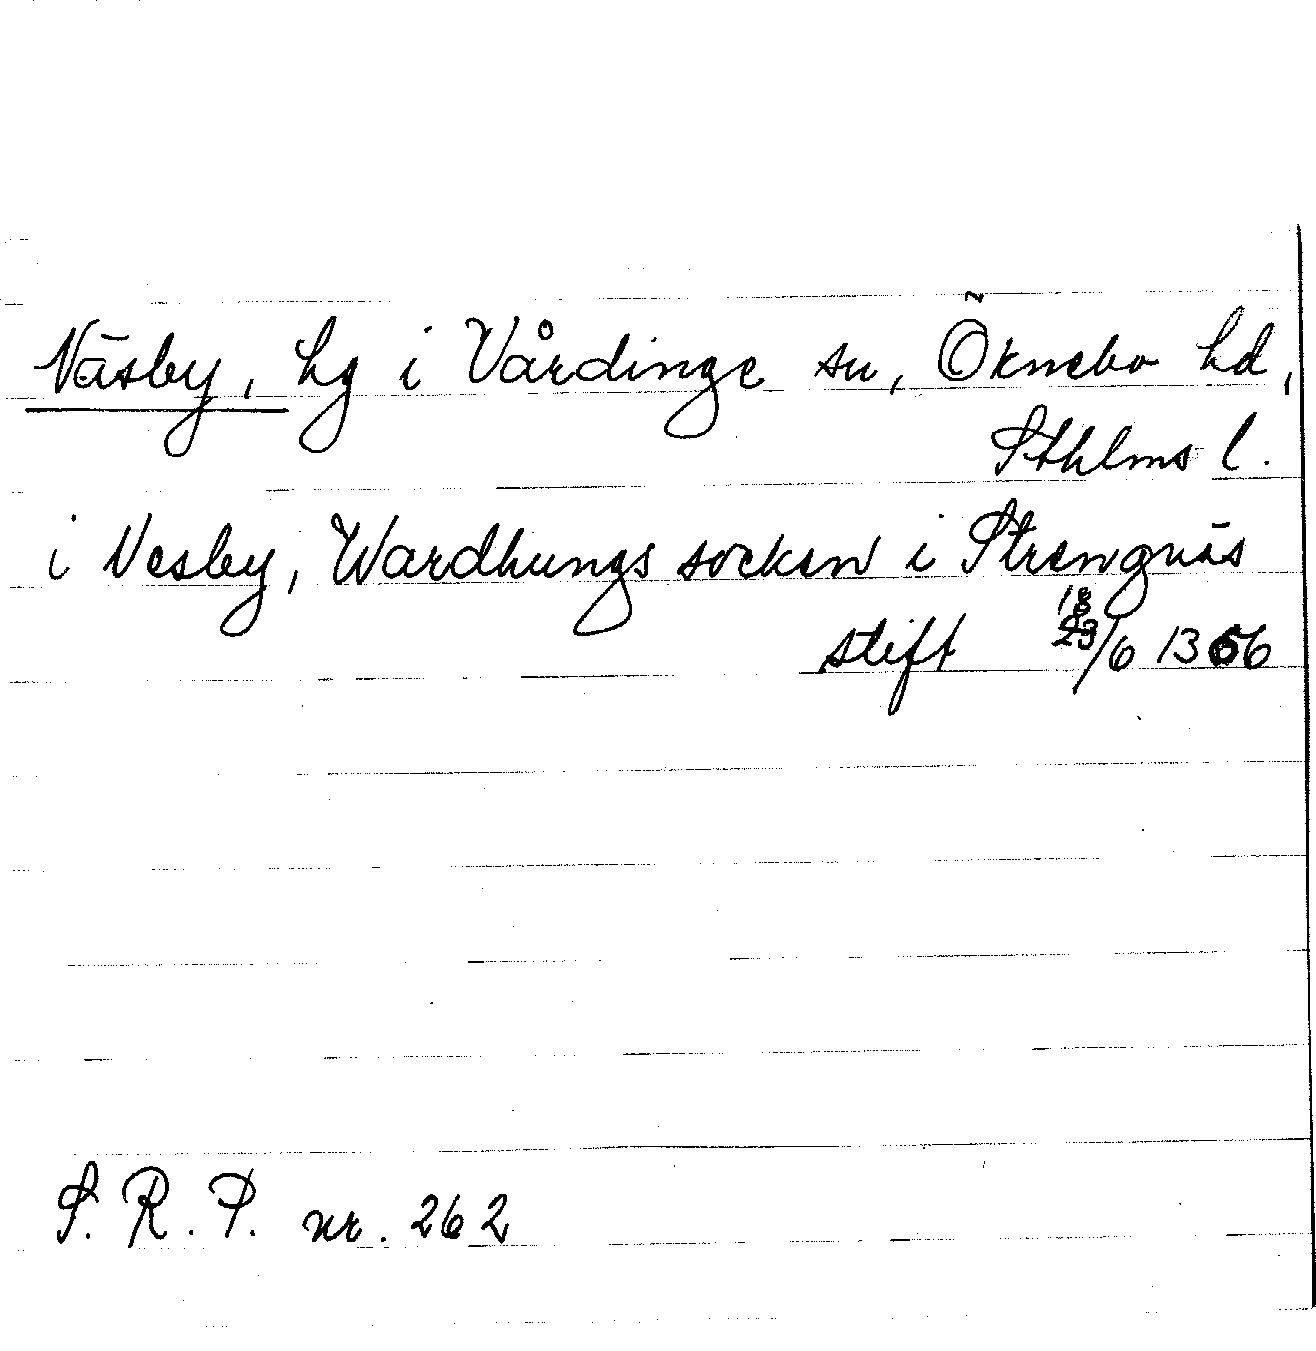 Näsby, hg i Vårdinge sn, Öknebo hd,
Sthlms l.
i Nesby, Wardhungs socken i Strengnäs
stift 18/6 1366
S. R. P. nr. 262